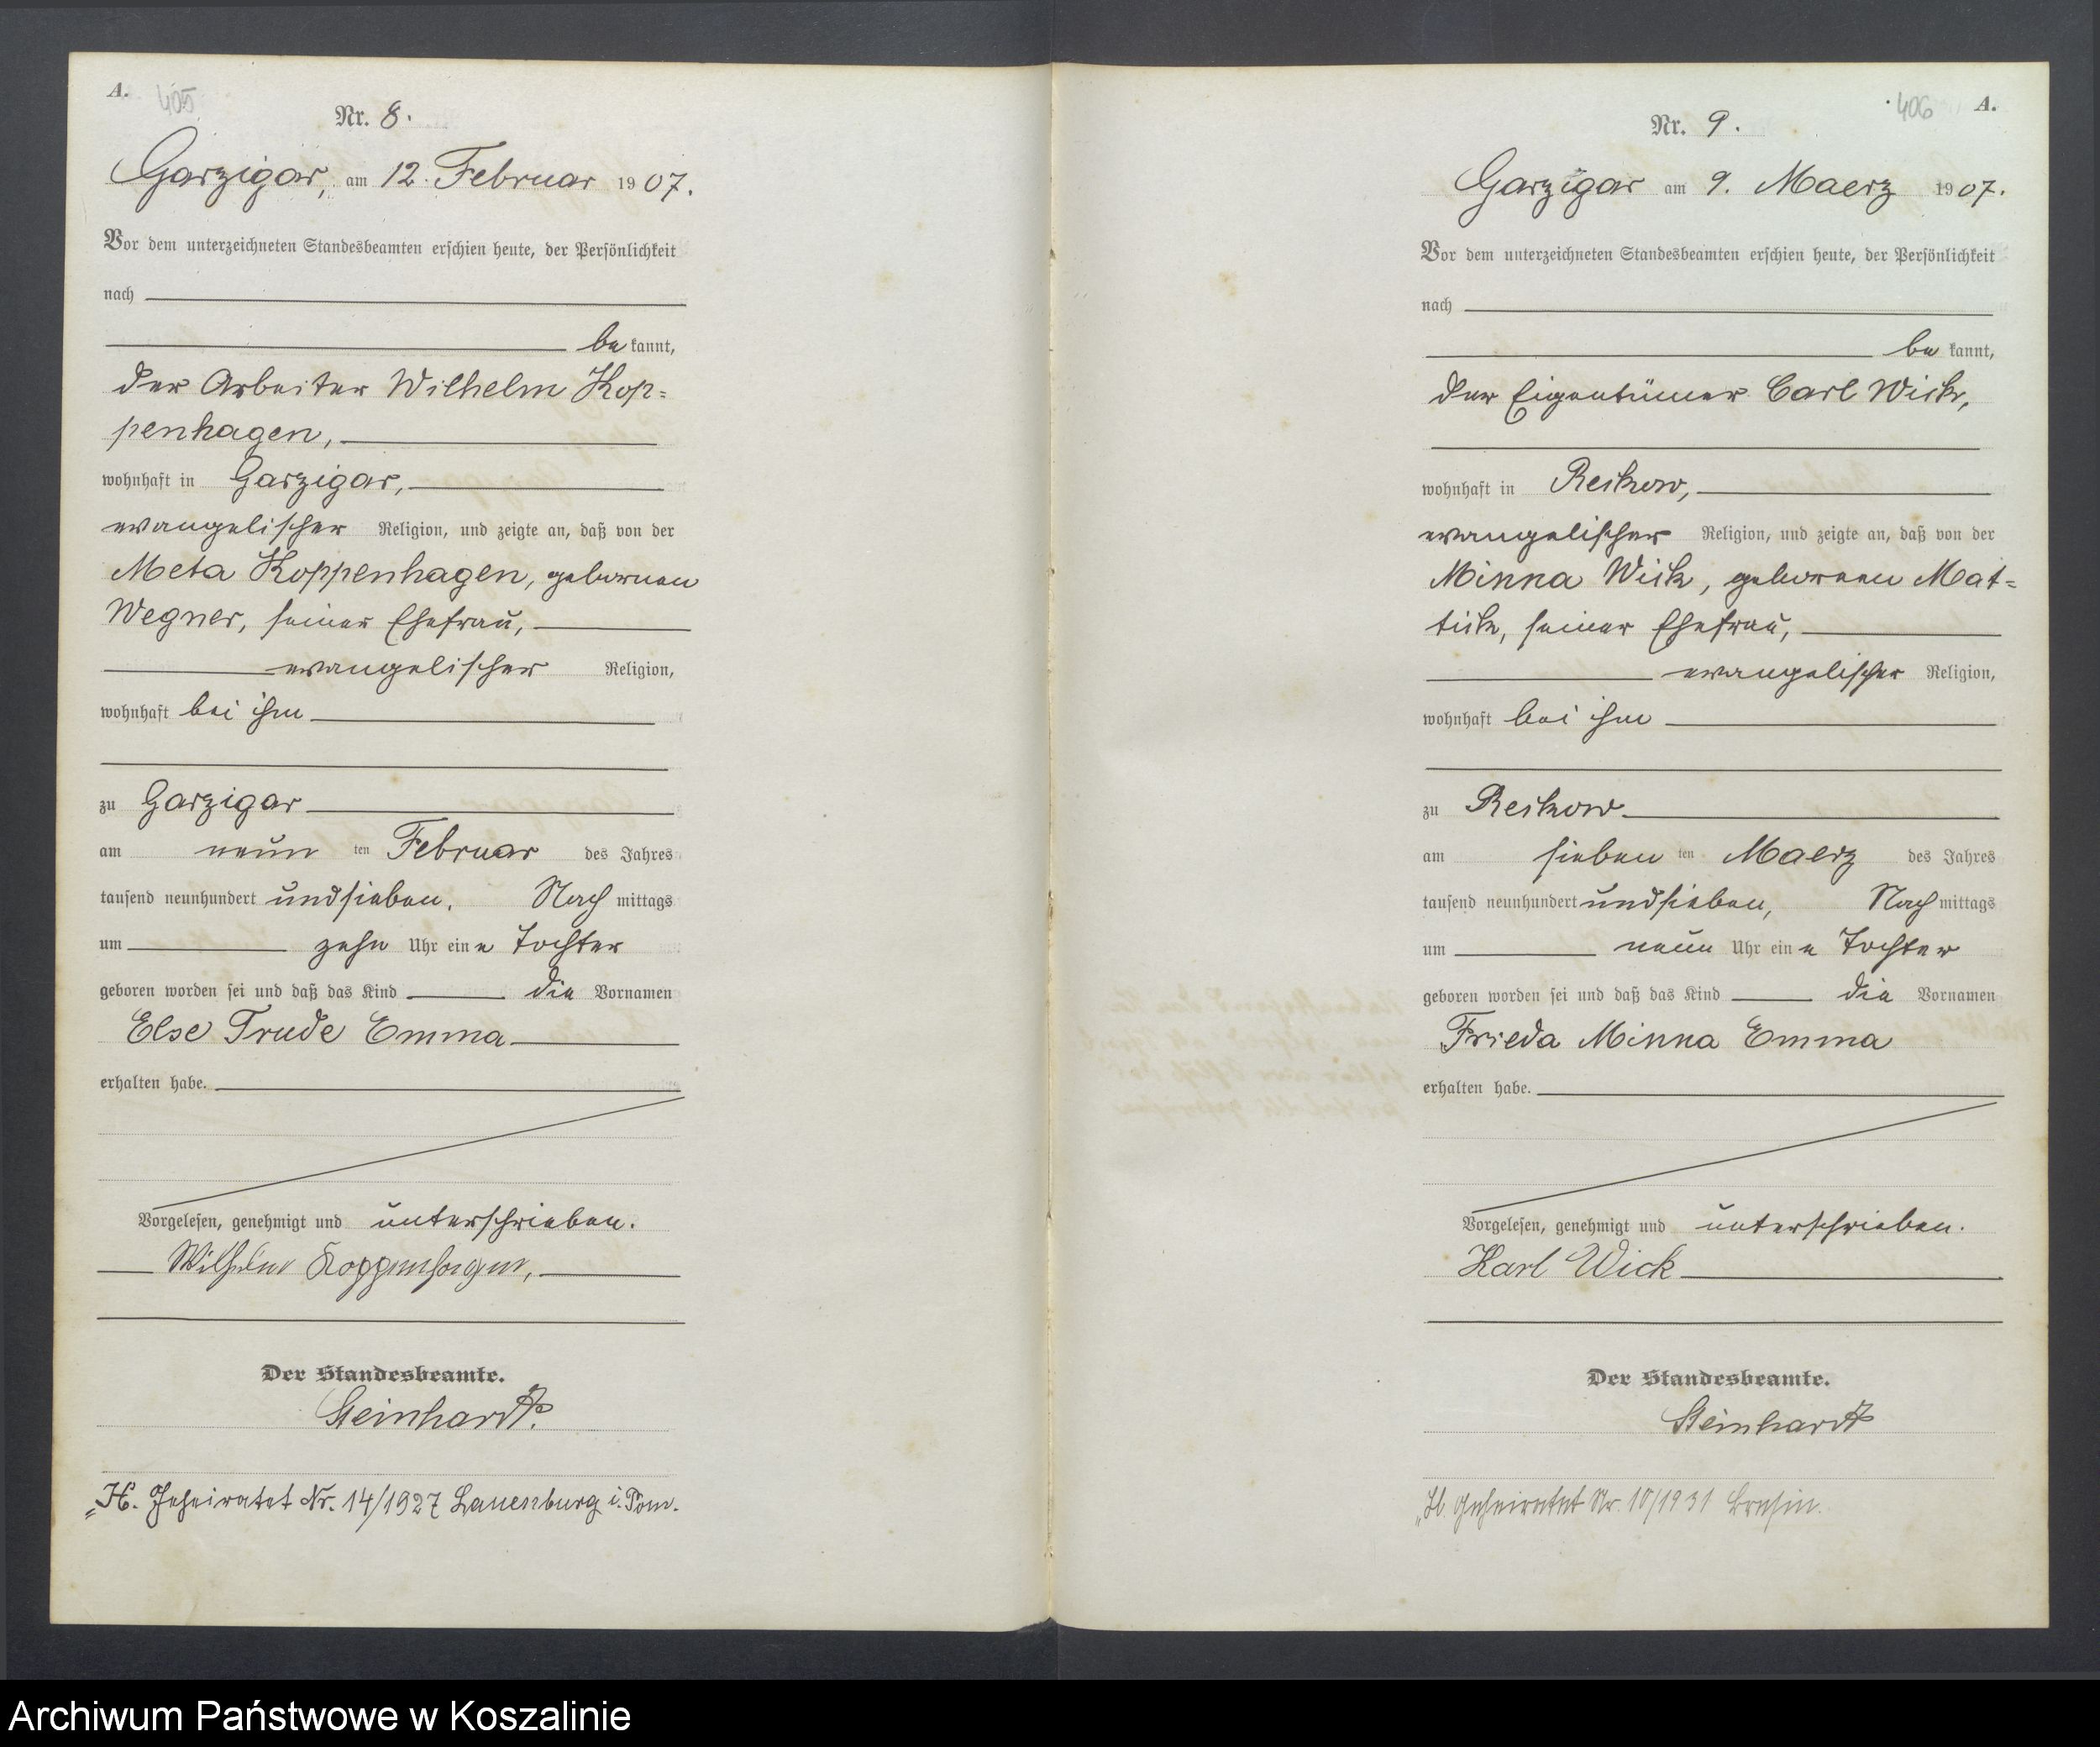 A.
405
Nr. 8.
Garzigar, am 12. Februar 1907.
Vor dem unterzeichneten Standesbeamten erschien heute, der Persönlichkeit
nach
be kannt,
der Arbeiter Wilhelm Kop=
penhagen,
wohnhaft in Garzigar,
evangelischer Religion, und zeigte an, daß von der
Meta Koppenhagen, gebornen
Wegner, seiner Ehefrau,
evangelischer Religion,
wohnhaft bei ihm
zu Garzigar
am neun ten Februar des Jahres
tausend neunhundert undsieben, Nach mittags
um zehn Uhr ein e Tochter
geboren worden sei und daß das Kind die Vornamen
Else Trude Emma
erhalten habe.
Vorgelesen, genehmigt und unterschrieben.
Wilhelm Koppenhagen,
Der Standesbeamte.
Steinhardt.
„H. Geheiratet Nr. 14/1927 Lauenburg i. Pom.
406
A.
Nr. 9.
Garzigar am 9. Maerz 1907.
Vor dem unterzeichneten Standesbeamten erschien heute, der Persönlichkeit
nach
be kannt,
der Eigentümer Carl Wick,
wohnhaft in Reskow,
evangelischer Religion, und zeigte an, daß von der
Minna Wick, gebornen Mat=
tick, seiner Ehefrau,
evangelischer Religion,
wohnhaft bei ihm
zu Reskow
am sieben ten Maerz des Jahres
tausend neunhundert undsieben, Nach mittags
um neun Uhr ein e Tochter
geboren worden sei und daß das Kind die Vornamen
Frieda Minna Emma
erhalten habe.
Vorgelesen, genehmigt und unterschrieben.
Karl Wick
Der Standesbeamte.
Steinhardt
„H. Geheiratet Nr. 10/1931
Archiwum Państwowe w Koszalinie